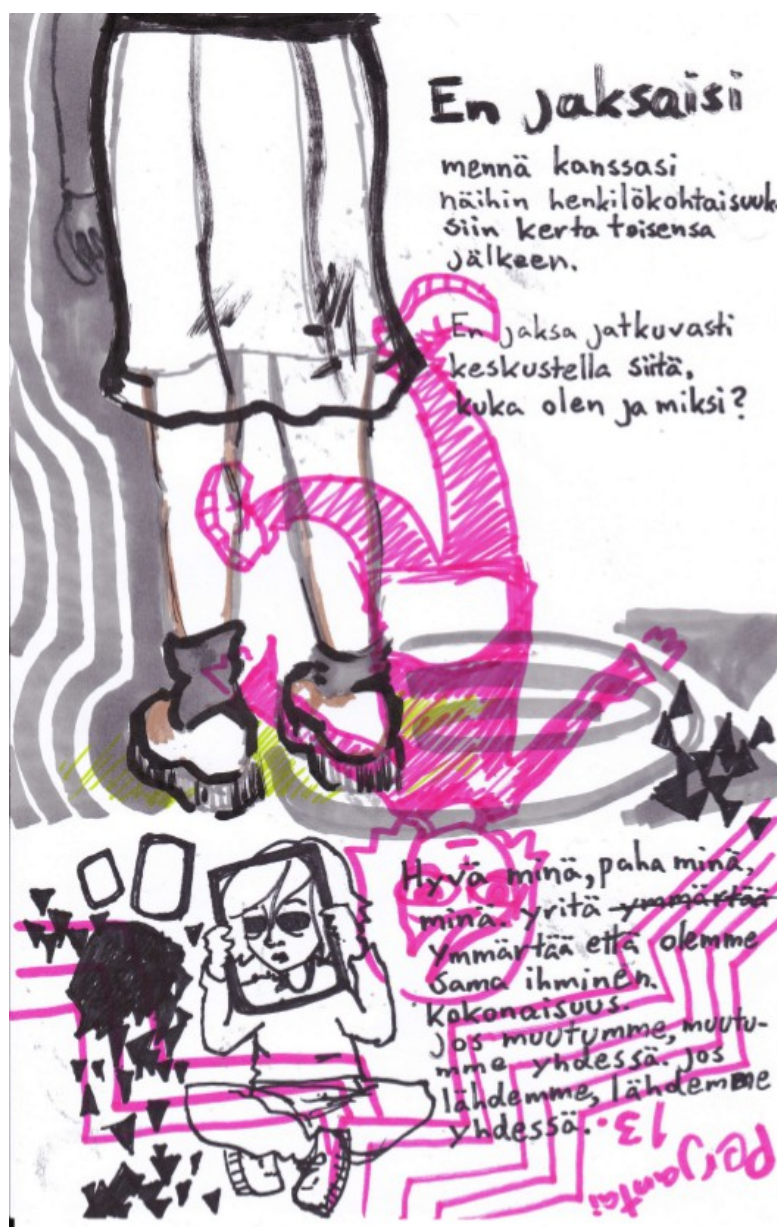 En jaksaisi
mennä kanssasi
näihin henkilökohtaisuuk-
siin kerta toisensa
jälkeen.
En jaksa jatkuvasti
keskustella siitä,
kuka olen ja miksi?
Hyvä minä, paha minä,
minä. yritä ymmärtää
ymmärtää että olemme
sama ihminen.
kokonaisuus.
jos muutumme, muutu-
mme yhdessä. jos
lähdemme, lähdemme
yhdessä.
Perjantai
13.